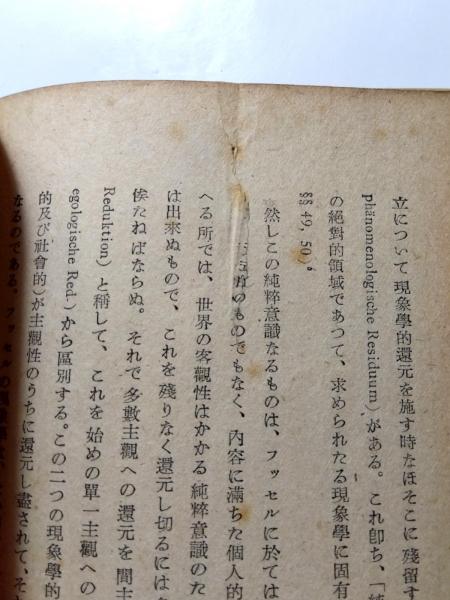 立について現象學的還元を施す時なほそこに殘留す
phänomenologische Residuum)がある。これ卽ち、「純
の絕對的領域であつて、求められたる現象學に固有
§§ 49, 50)。
然しこの純粹意識なるものは、フッセルに於ては
のものでもなく、內容に滿ちた個人的
へる所では、世界の客觀性はかかる純粹意識のた
は出來ぬもので、これを殘りなく還元し切るには
俟たねばならぬ。それで多數主觀への還元を間主
Reduktion)と稱して、これを始めの單一主觀への
egologische Red.)から區別する。この二つの現象學的
的及び社會的)が主觀性のうちに還元し盡されて、そ
なるのである。フッセルの